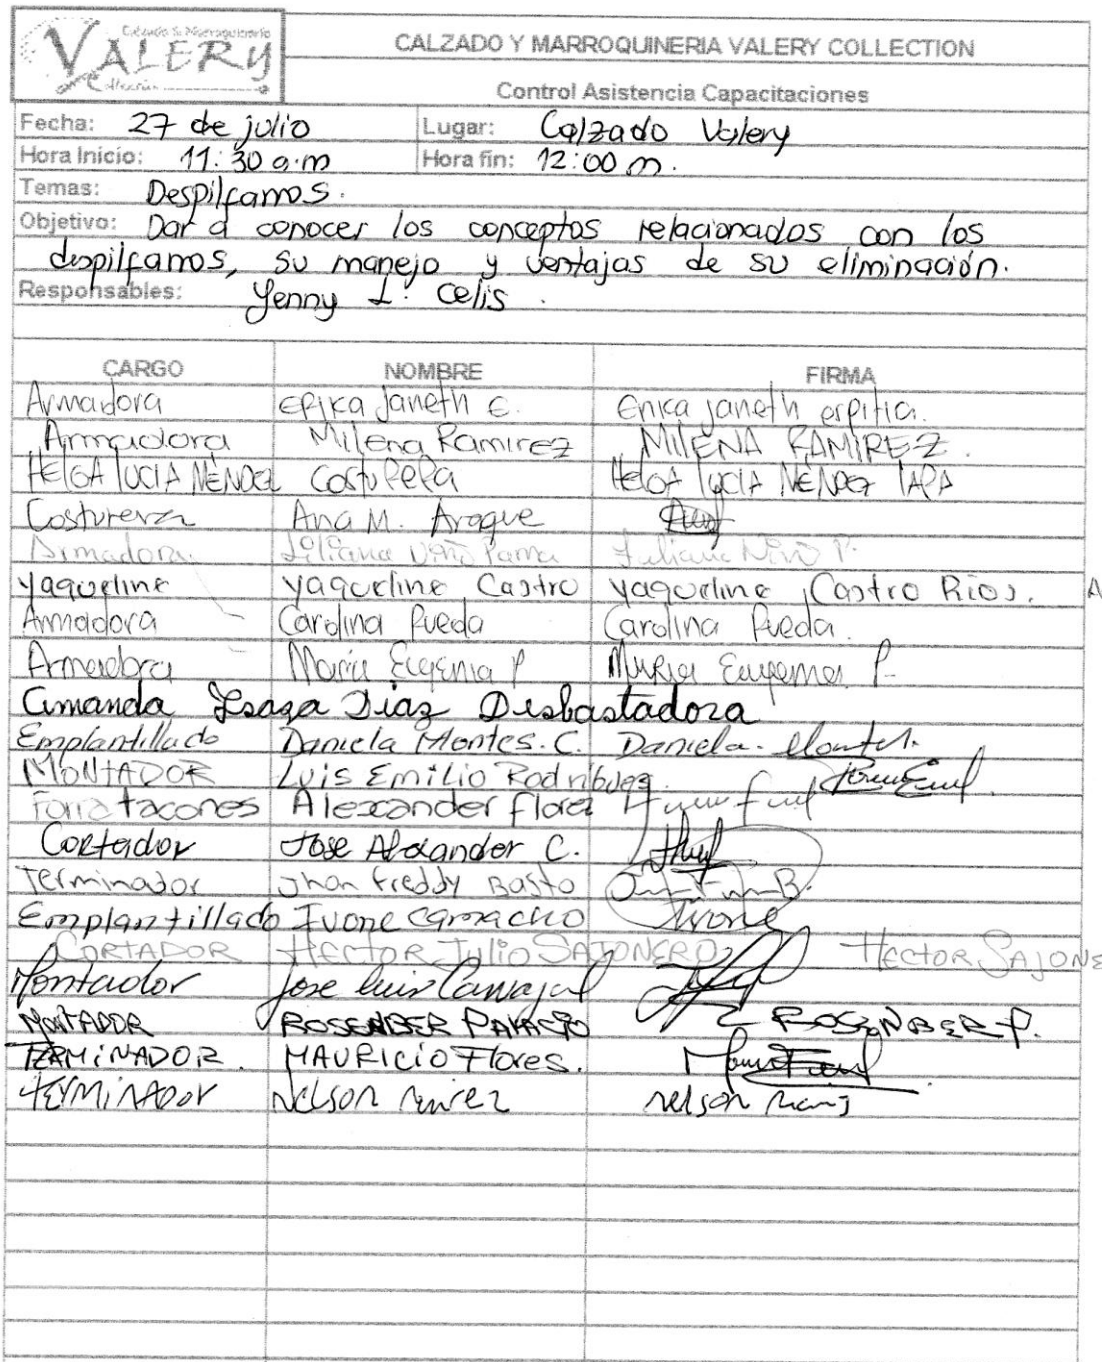 Calzado & Marroquinería
VALERY
Collection
CALZADO Y MARROQUINERIA VALERY COLLECTION
Control Asistencia Capacitaciones
Fecha: 27 de julio Lugar: Calzado Valery
Hora Inicio: 11:30 a.m Hora fin: 12:00 m.
Temas: Despilfarros.
Objetivo: Dar a conocer los conceptos relacionados con los
despilfarros, su manejo y ventajas de su eliminación.
Responsables: Yenny L. Celis.
CARGO NOMBRE FIRMA
Armadora Erika Janeth E. Erica Janeth espitia.
Armadora Milena Ramirez MILENA RAMIREZ.
HELGA LUCIA MENDEZ Costurera HELGA LUCIA MENDEZ
Costurera Ana M. Araque
Armadora Liliana Niño Parra Liliana Niño P.
Yaqueline Yaqueline Castro Yaqueline Castro Rios. A
Armadora Carolina Rueda Carolina Rueda.
Armadora Maria Eugenia P Maria Eugenia P.
Amanda Isaza Diaz Desbastadora
Emplantillado Daniela Montes. C. Daniela. Montes.
MONTADOR Luis Emilio Rodriguez.
Forra tacones Alexander Florez
Cortador Jose Alexander C.
Terminador Jhon Freddy Basto
Emplantillado Ivone Camacho Ivone
CORTADOR HECTOR JULIO SAJONERO HECTOR SAJONE
Montador Jose Luis Carvajal
MONTADOR ROSENBER PALACIO ROSENBER P.
TERMINADOR. MAURICIO Flores.
TERMINADOR Nelson Nelson